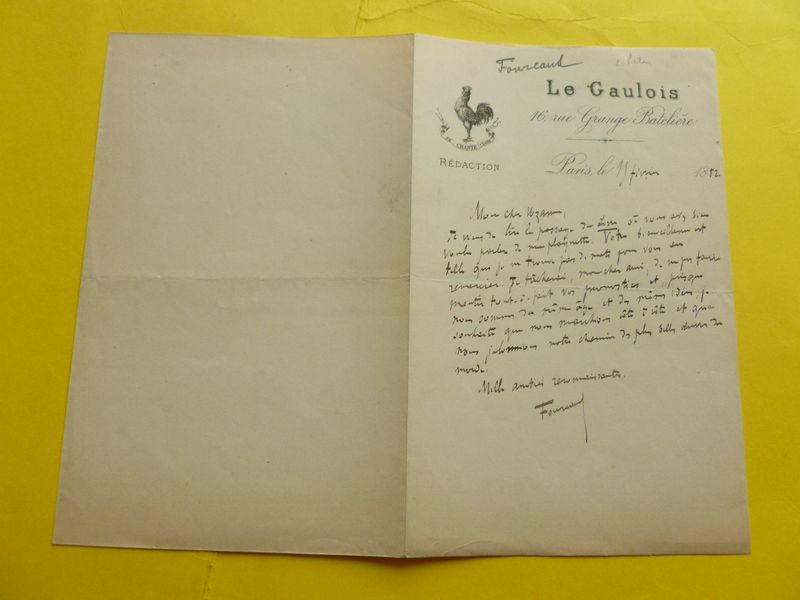 Fourcaud
Le Gaulois
16, rue Grange Batelière
CHANTE CLAIR
RÉDACTION
Paris, le 15 février 1882.
Mon cher Uzanne,
Je viens de lire le passage du Livre où vous avez bien
voulu parler de ma plaquette. Votre bienveillance est
telle que je ne trouve pas de mots pour vous en
remercier. Je tâcherai, mon cher ami, de ne pas faire
mentir tout-à-fait vos pronostics et, puisque
nous sommes du même âge et des mêmes idées, je
souhaite que nous marchions côte à côte et que
nous jalonnions notre chemin des plus belles œuvres du
monde.
Mille amitiés reconnaissantes.
Fourcaud